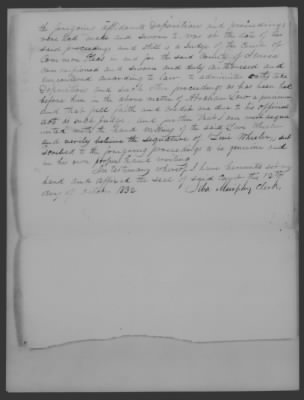 the foregoing affidavits Depositions and proceedings
were had made and sworn to was at the date of the
said proceedings and still is a Judge of the Court of
Common Pleas in and for the said County of Seneca
commissioned and sworn and duly authorised and
empowered according to law to administer oaths take
Depositions and such other proceedings as has been had
before him in the above matter of Abraham Law a pensioner
and that full faith and credit are due to his official
acts as such Judge and further that I am well acqua
inted with the hand writing of the said Levi Wheeler
and verily believe the signature of Levi Wheeler, sub
scribed to the foregoing proceedings to be genuine and
in his own proper hand writing
In testimony whereof I have hereunto set my
hand and affixed the seal of said Court this 12th
day of October 1832
Seba Murphy Clerk